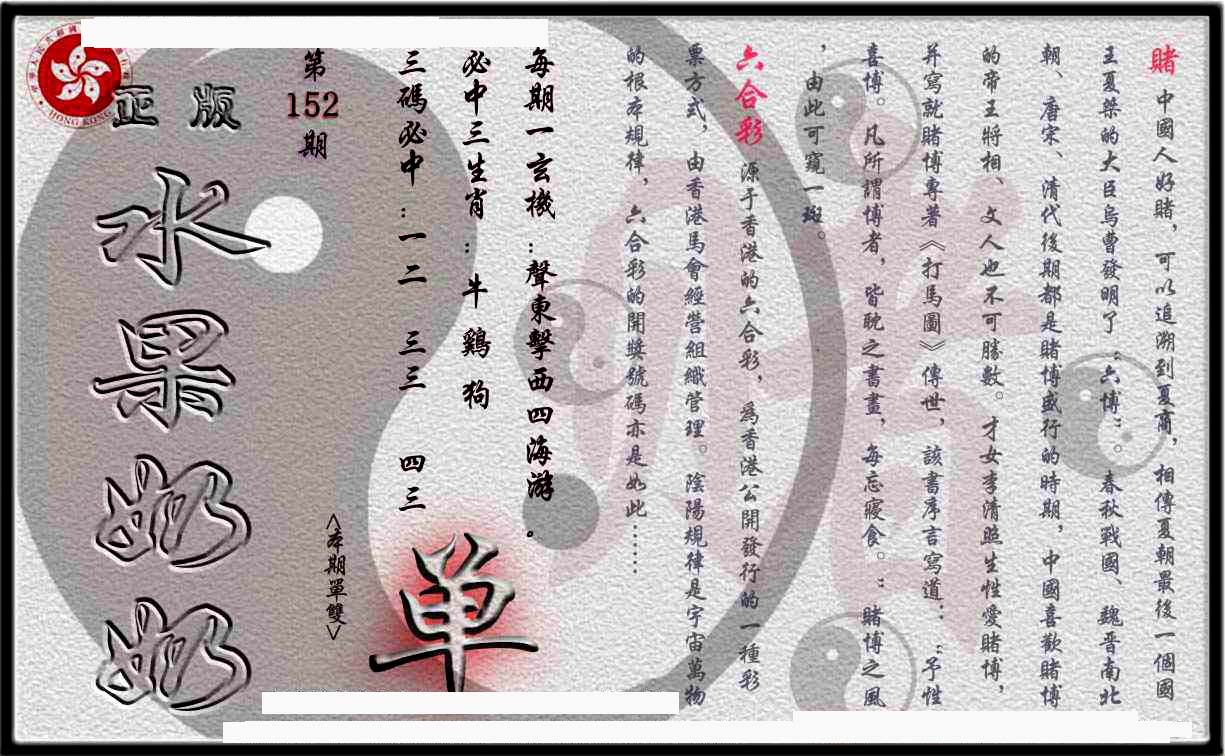 賭 中國人好賭，可以追溯到夏商，相傳夏朝最後一個國
王夏桀的大臣烏曹發明了“六博”。春秋戰國、魏晋南北
朝、唐宋、清代後期都是賭博盛行的時期，中國喜歡賭博
的帝王將相、文人也不可勝數。才女李清照生性愛賭博，
并寫就賭博專著《打馬圖》傳世，該書序言寫道：“予性
喜博。凡所謂博者，皆耽之書畫，每忘寢食。”賭博之風
，由此可窺一斑。
六合彩 源于香港的六合彩，爲香港公開發行的一種彩
票方式，由香港馬會經營組織管理。陰陽規律是宇宙萬物
的根本規律，六合彩的開獎號碼亦是如此……
每期一玄機：聲東擊西四海游。
必中三生肖：牛 鷄 狗
三碼必中：一二 三三 四三
<本期單雙>
单
第
152
期
正版
水果奶奶
HONG KONG